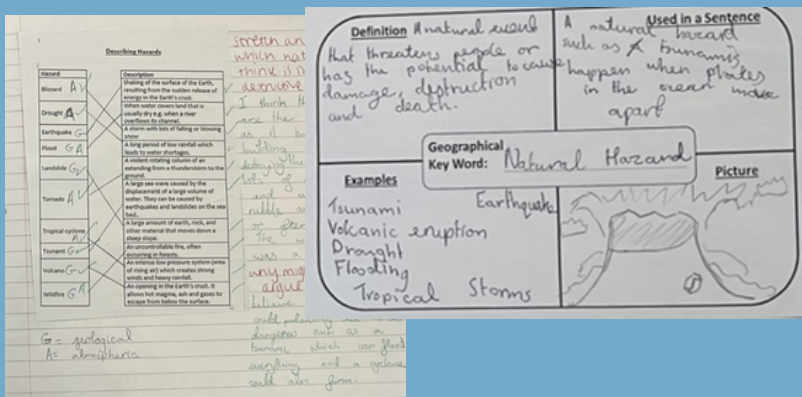 Describing Hazards
Hazard
Description
Blizzard A
Shaking of the surface of the Earth,
resulting from the sudden release of
energy in the Earth's crust.
Drought A
When water covers land that is
usually dry e.g. when a river
overflows its channel.
Earthquake G
A storm with lots of falling or blowing
snow
Flood G A
A long period of low rainfall which
leads to water shortages.
Landslide G
A violent rotating column of air
extending from a thunderstorm to the
ground.
Tornado A
A large sea wave caused by the
displacement of a large volume of
water. They can be caused by
earthquakes and landslides on the sea
bed.
Tropical cyclone A
A large amount of earth, rock, and
other material that moves down a
steep slope.
Tsunami G
An uncontrollable fire, often
occurring in forests.
Volcano G
An intense low pressure system (area
of rising air) which creates strong
winds and heavy rainfall.
Wildfire G A
An opening in the Earth's crust. It
allows hot magma, ash and gases to
escape from below the surface.
G = geological
A = atmospheric
stretch an
which nat
think is
I think th
are the
as it
lots of
and
or
The
was a
why mig
argue
believe
could
dangerous as a
which can flood
everything and a cyclone
could also form.
Definition
A natural event
that threatens people or
has the potential to cause
damage, distruction
and death.
Used in a Sentence
A natural hazard
such as A tsunamis
happen when plates
in the ocean move
apart
Geographical
Key Word: Natural Hazard
Examples
Tsunami Earthquake
Volcanic eruption
Drought
Flooding
Tropical Storms
Picture